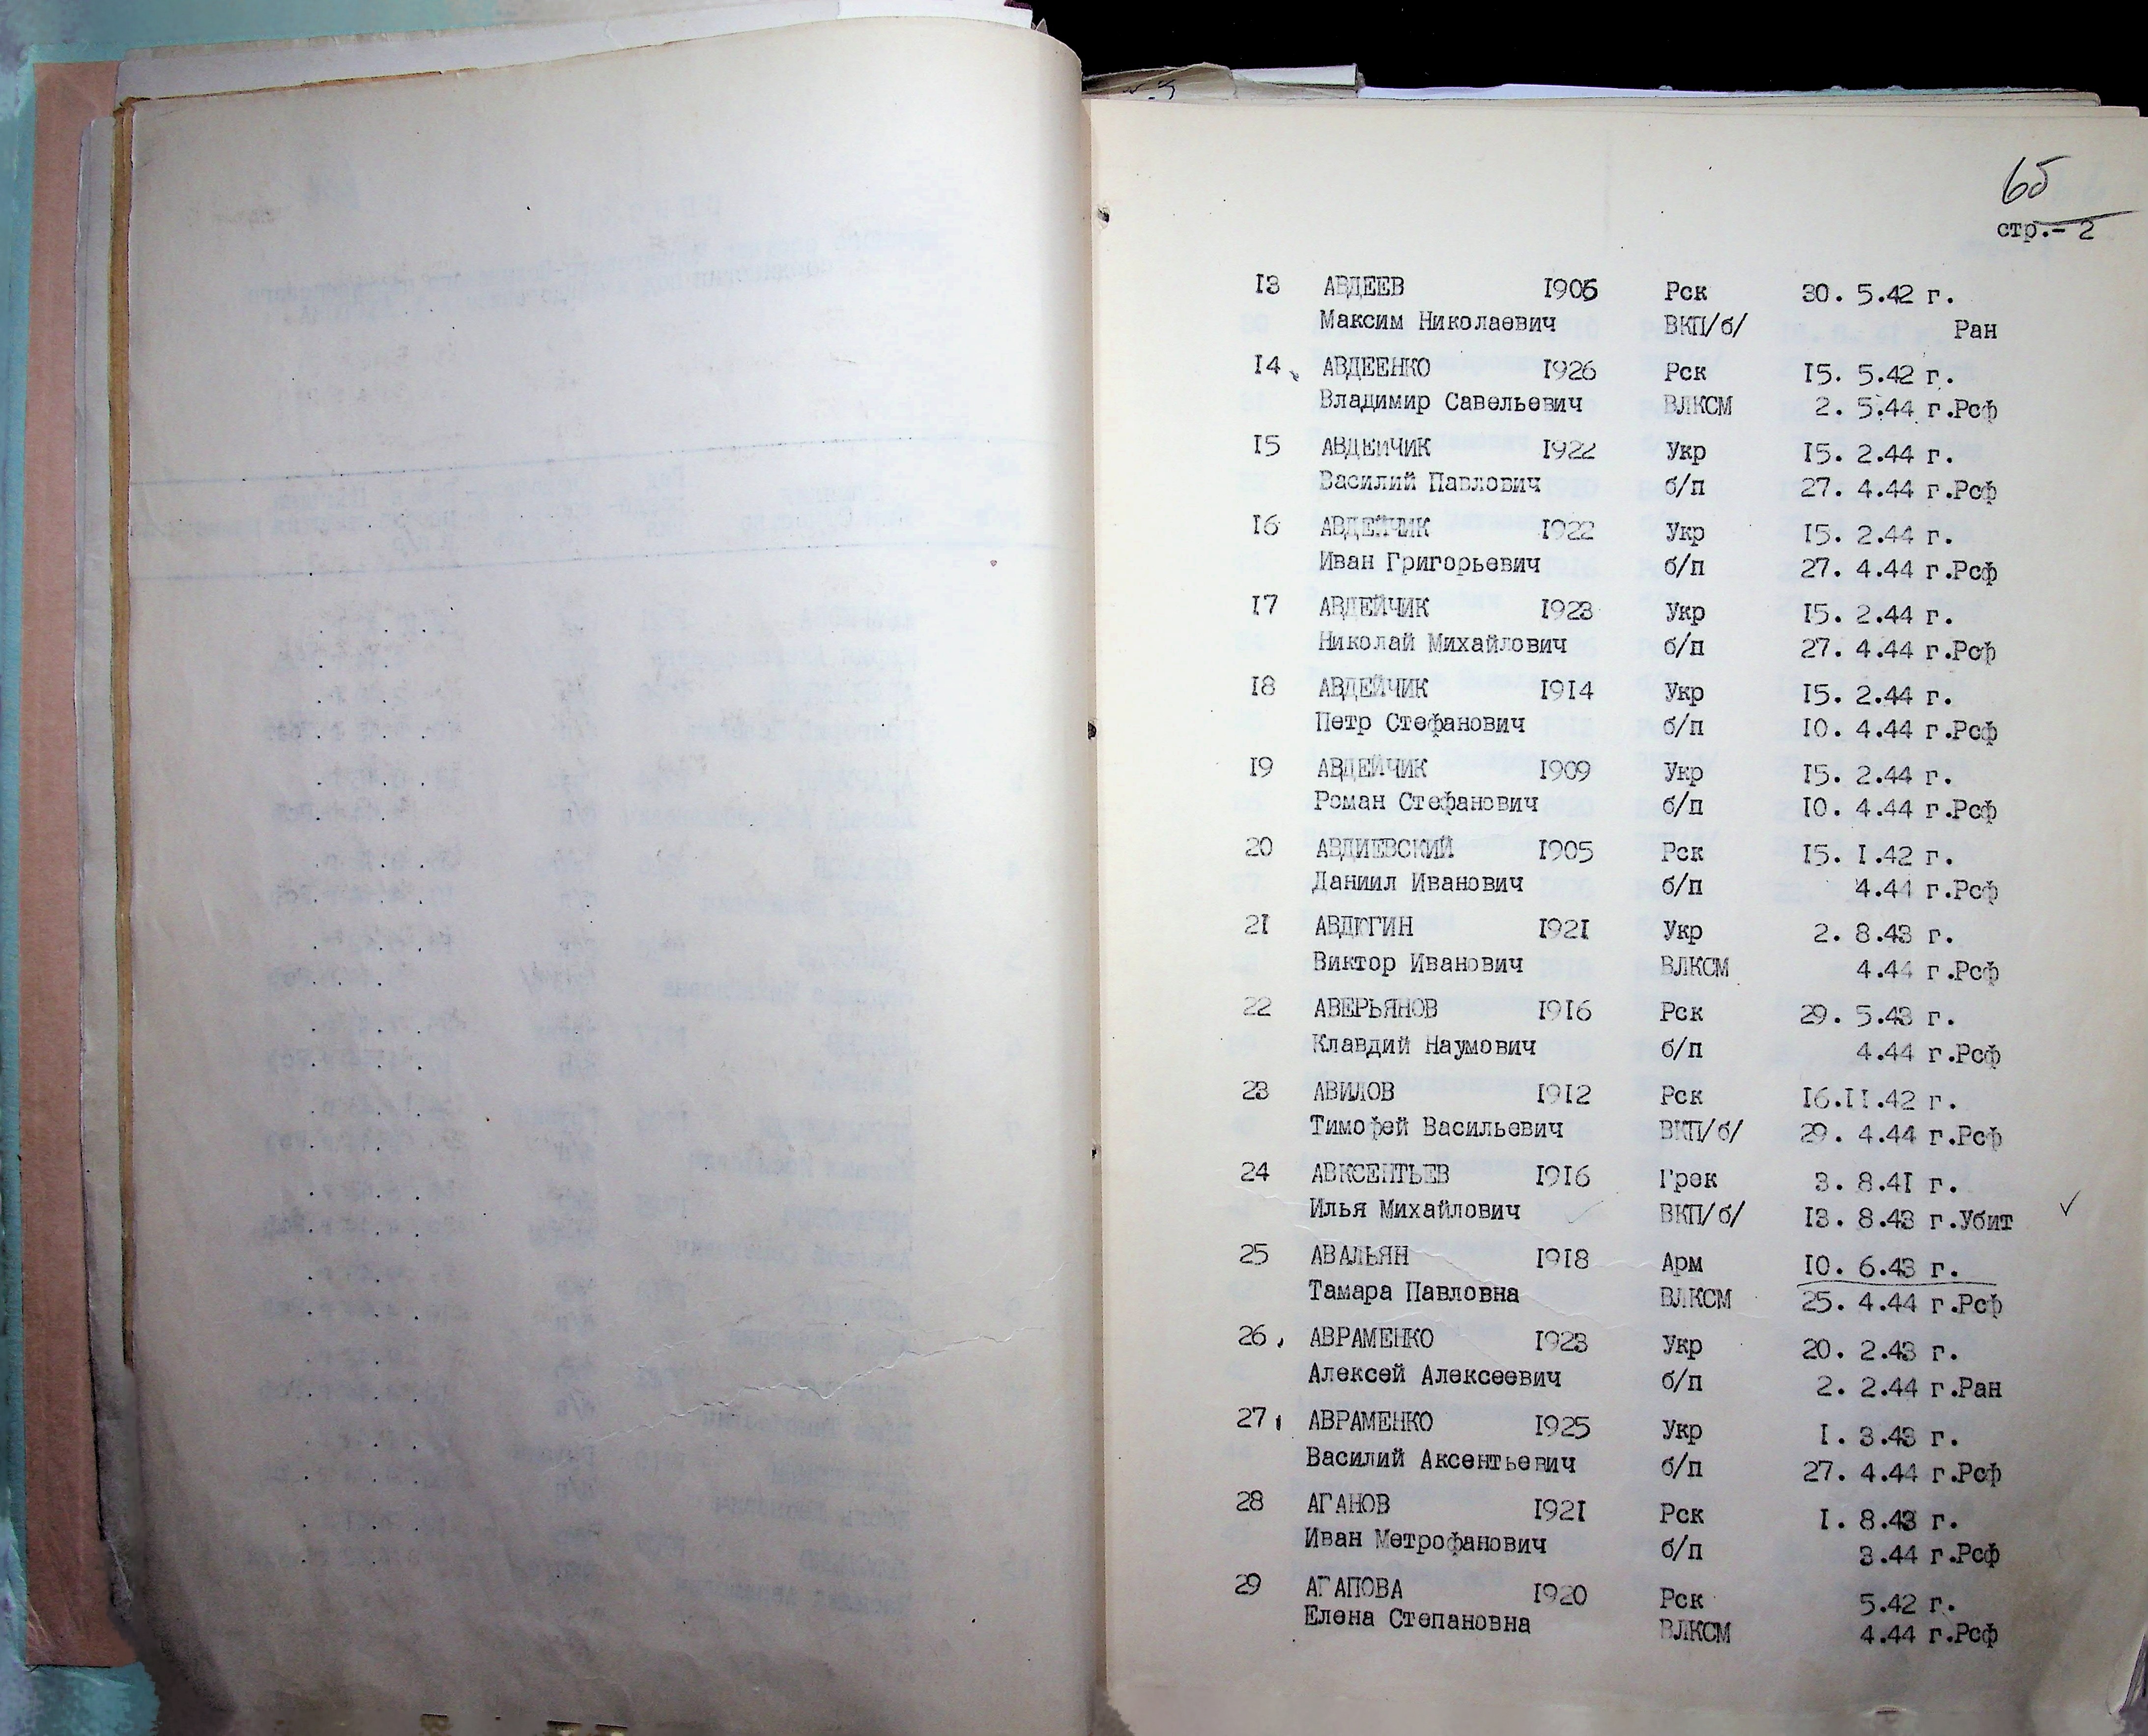 65
стр.- 2
13 АВДЕЕВ 1905 Рск 30. 5.42 г.
Максим Николаевич ВКП/б/ Ран
14 АВДЕЕНКО 1926 Рск 15. 5.42 г.
Владимир Савельевич ВЛКСМ 2. 5.44 г.Рсф
15 АВДЕЙЧИК 1922 Укр 15. 2.44 г.
Василий Павлович б/п 27. 4.44 г.Рсф
16 АВДЕЙЧИК 1922 Укр 15. 2.44 г.
Иван Григорьевич б/п 27. 4.44 г.Рсф
17 АВДЕЙЧИК 1923 Укр 15. 2.44 г.
Николай Михайлович б/п 27. 4.44 г.Рсф
18 АВДЕЙЧИК 1914 Укр 15. 2.44 г.
Петр Стефанович б/п 10. 4.44 г.Рсф
19 АВДЕЙЧИК 1909 Укр 15. 2.44 г.
Роман Стефанович б/п 10. 4.44 г.Рсф
20 АВДИЕВСКИЙ 1905 Рск 15. 1.42 г.
Даниил Иванович б/п 4.44 г.Рсф
21 АВДЮГИН 1921 Укр 2. 8.43 г.
Виктор Иванович ВЛКСМ 4.44 г.Рсф
22 АВЕРЬЯНОВ 1916 Рск 29. 5.43 г.
Клавдий Наумович б/п 4.44 г.Рсф
23 АВИЛОВ 1912 Рск 16.11.42 г.
Тимофей Васильевич ВКП/б/ 29. 4.44 г.Рсф
24 АВКСЕНТЬЕВ 1916 Грек 3. 8.41 г.
Илья Михайлович ВКП/б/ 13. 8.43 г.Убит
25 АВАЛЬЯН 1918 Арм 10. 6.43 г.
Тамара Павловна ВЛКСМ 25. 4.44 г.Рсф
26 АВРАМЕНКО 1923 Укр 20. 2.43 г.
Алексей Алексеевич б/п 2. 2.44 г.Ран
27 АВРАМЕНКО 1925 Укр 1. 3.43 г.
Василий Аксентьевич б/п 27. 4.44 г.Рсф
28 АГАНОВ 1921 Рск 1. 8.43 г.
Иван Метрофанович б/п 3.44 г.Рсф
29 АГАПОВА 1920 Рск 5.42 г.
Елена Степановна ВЛКСМ 4.44 г.Рсф